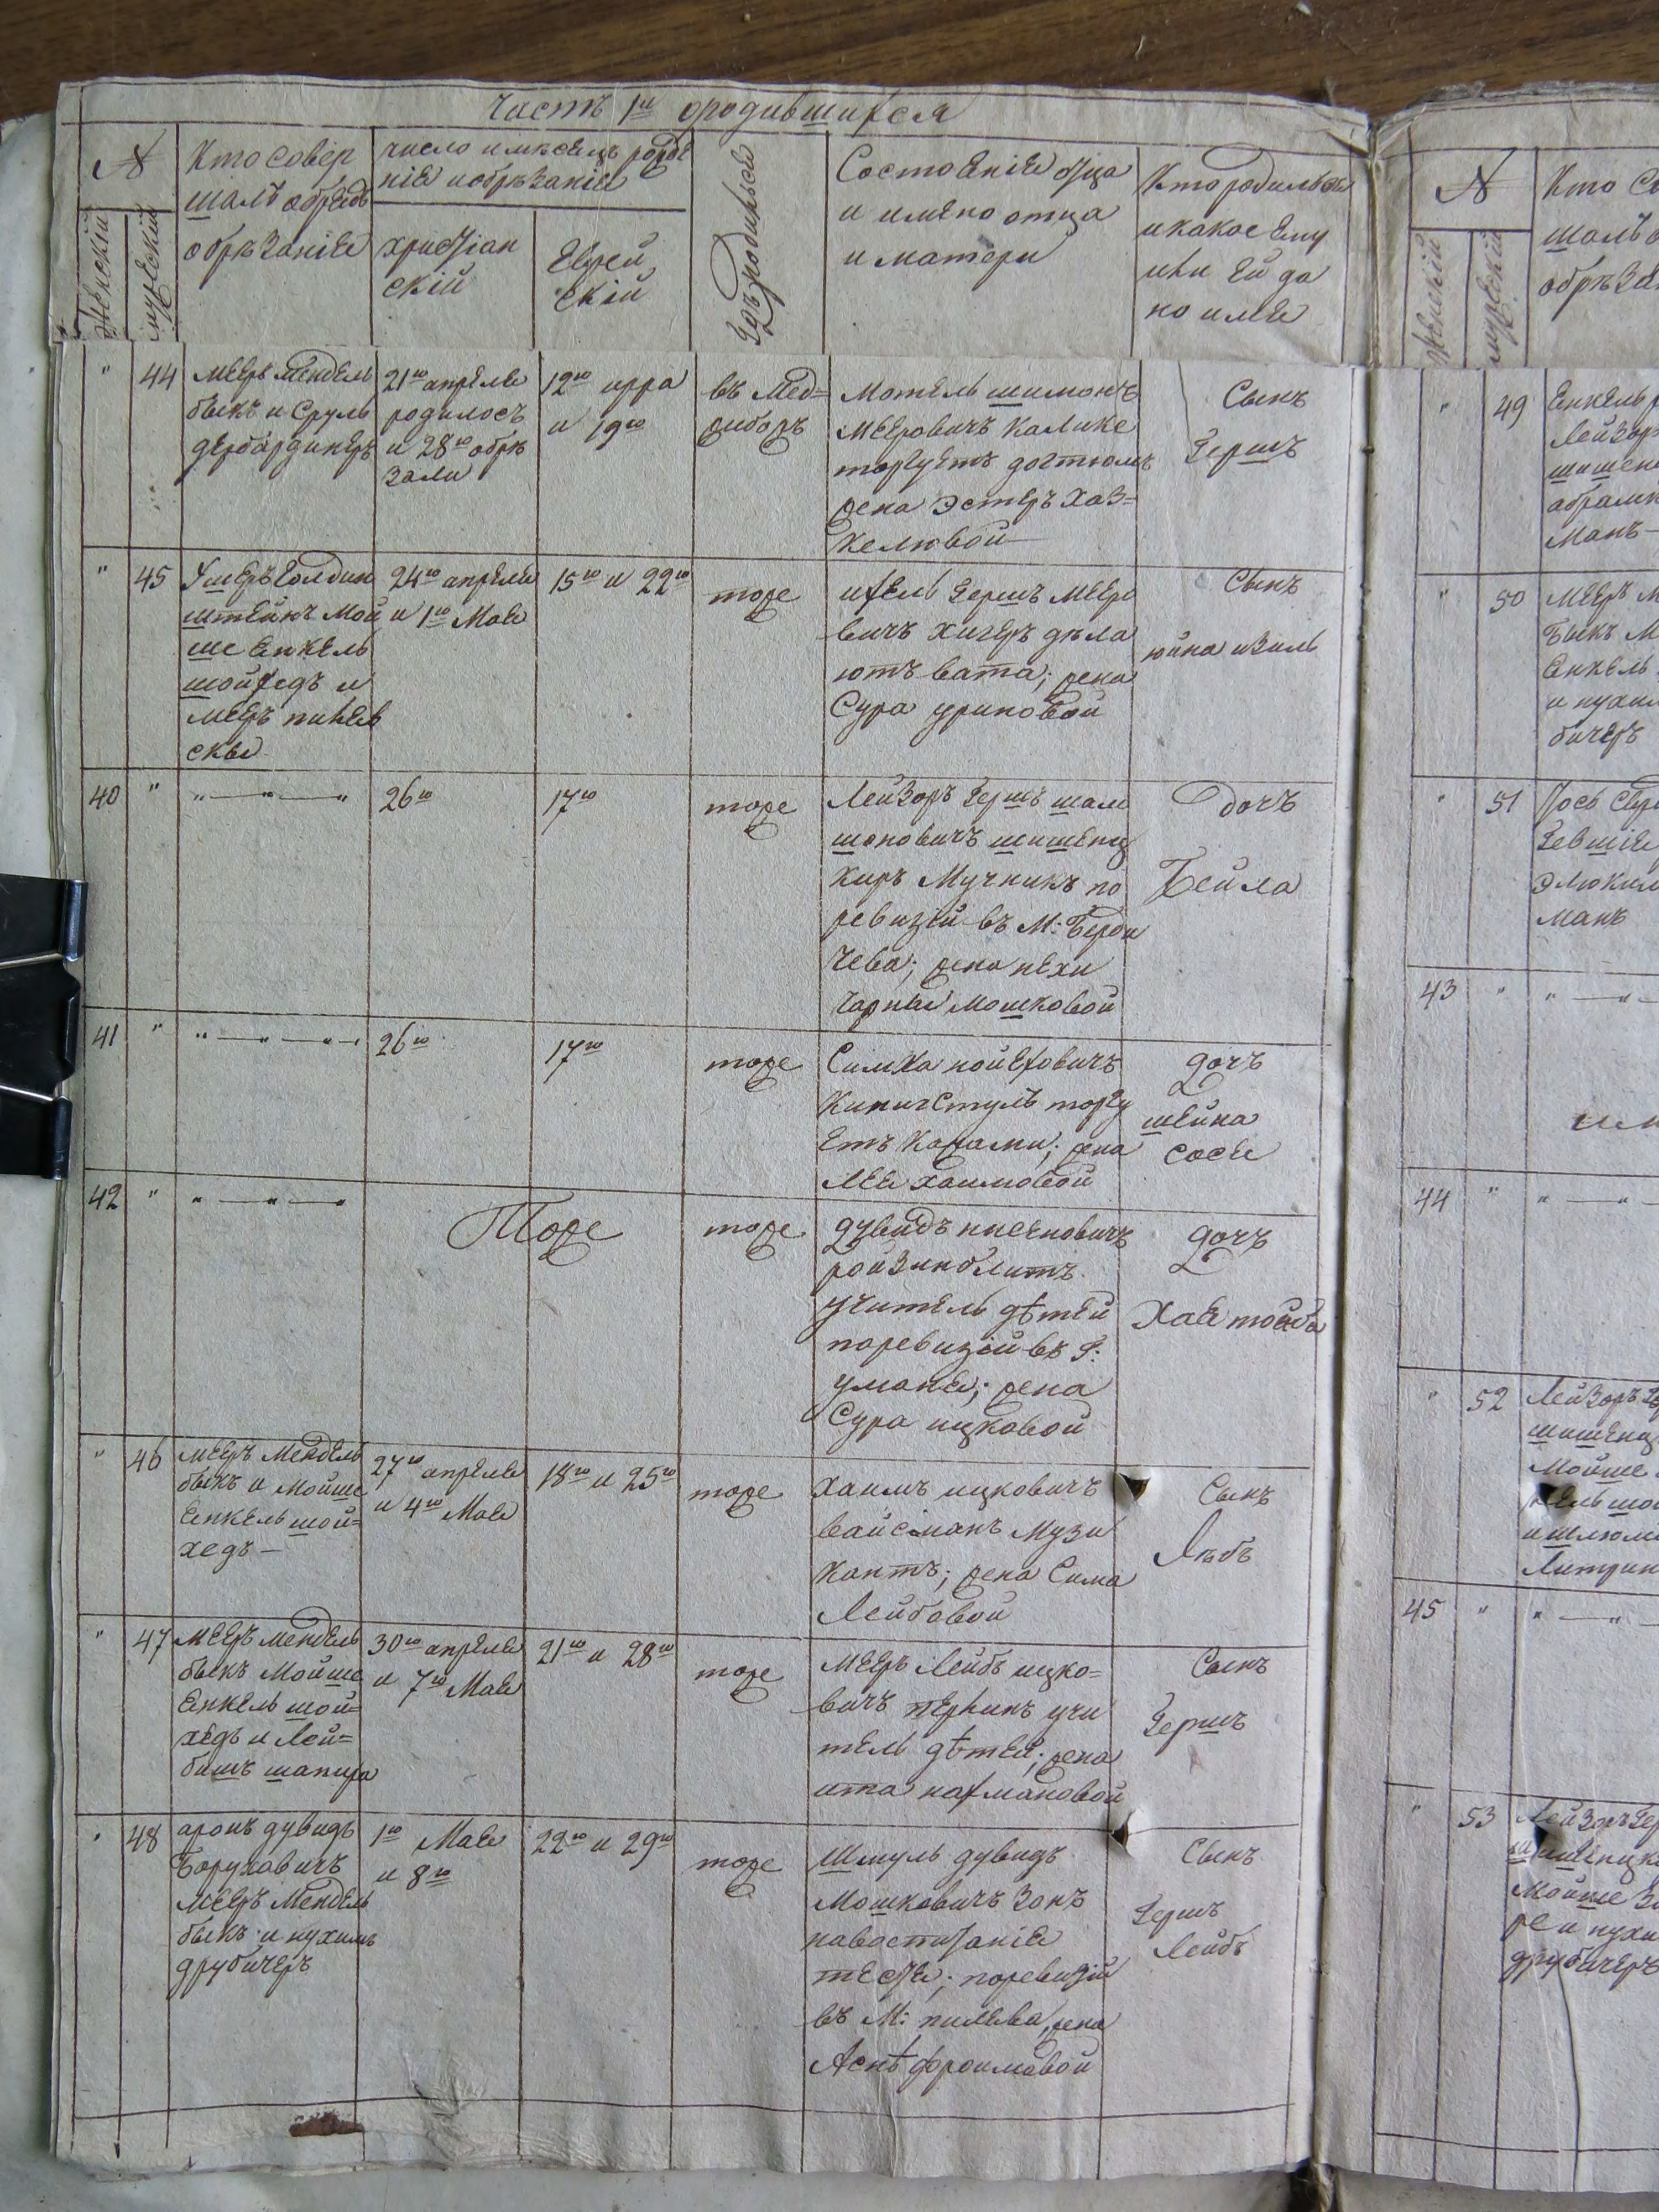 Часть 1я о родившихся
№
Кто совер
шалъ обрядъ
обрѣзаніе
число и мѣсецъ рожде
ніе и обрѣзаніе
христіан
скій
Еврей
скій
женскій
мужескій
гдѣ родился
Состоеніе отца
и имено отца
и матери
Кто родился
и какое ему
или ей да
но име
" 44
Мееръ Мендель
быкъ и Сруль
дербардикеръ
21го апреле
родилось
и 28го обрѣ
зали
12го ияра
и 19го
въ Мед=
жибожъ
Мотель шимонъ
Мееровичъ Калике
торгуетъ
жена Эстеръ Хаз=
келювой
Сынъ
Гершъ
" 45
Ушеръ Голдин
штейнъ Мой
ше Енкель
шойхедъ и
Мееръ
скы
24го апреле
и 1го Мае
15го и 22го
тоже
ихель Гершъ Меере
вичъ Хигеръ дѣла
ютъ вата; жена
Сура уриновой
Сынъ
юйна изиль
40 "
" — " — "
26го
17го
тоже
Лейзоръ Гершъ шам
шоновичъ шишенц
киръ Мучникъ по
ревизій въ М: Берди
чева; жена нехи
чарные Мошковой
дочъ
Бейла
41 "
" — " — "
26го
17го
тоже
Симха нойеховичъ
Кипичстулъ торгу
етъ ; жена
Лее хаимовой
дочъ
шейна
сосе
42 "
" — " — "
Тоже
тоже
дувидъ нисеновичъ
ройзинблитъ
учитель дѣтей
поревизій въ Г:
умане; жена
Сура ицковой
дочъ
Хае тойба
" 46
Мееръ Мендель
быкъ и Мойше
Енкель шой=
хедъ —
27го апреле
и 4го Мае
18го и 25го
тоже
Хаимъ ицковичъ
вайсманъ Музи
кантъ; жена Сима
Лейбовой
Сынъ
Лѣбъ
" 47
Мееръ Мендель
быкъ Мойше
Енкель шой=
хедъ и Лей=
бишъ шапира
30го апреле
и 7го Мае
21го и 28го
тоже
Мееръ Лейбъ ицко=
вичъ перлинъ учи
тель дѣтей; жена
ита нахмановой
Сынъ
Гершъ
" 48
аронъ дувидъ
Боруховичъ
Мееръ Мендель
быкъ и нухимъ
друбичеръ
1го Мае
и 8го
22го и 29го
тоже
Шмуль дувидъ
Мошковичъ Зонъ
тесте; поревизій
въ М: пилева, жена
Аснѣ фроимовой
Сынъ
Гершъ
Лейбъ
№
Кто со
шалъ о
обрѣза
женскій
мужескій
" 49
Енкель
Лейзоръ
шишен
абрамъ
манъ —
" 50
Мееръ М
Быкъ М
Енкель
и нухим
бичеръ
" 51
Іось
манъ
43 "
" — " —
44 "
" — " —
" 52
Лейзоръ Ге
шишенц
Мойше
и шлюм
45 "
" — " —
" 53
Лейзоръ Гер
шишенцки
Мойше
и нухи
друбичеръ